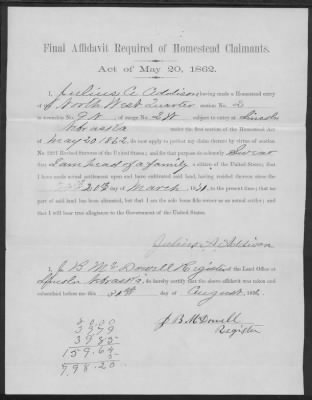 Final Affidavit Required of Homestead Claimants.
Act of May 20, 1862.
I, Julius A. Addison, having made a Homestead entry
of North West Quarter section No. 2
in township No. 9 N of range No. 2 W subject to entry at Lincoln
Nebraska under the first section of the Homestead Act
of May 20 1862, do now apply to perfect my claim thereto by virtue of section
No. 2291 Revised Statutes of the United States; and for that purpose do solemnly Swear
that I am head of a family, a citizen of the United States; that
I have made actual settlement upon and have cultivated said land, having resided thereon since the
20th day of March, 1871, to the present time; that no
part of said land has been alienated, but that I am the sole bona fide owner as an actual settler; and
that I will bear true allegiance to the Government of the United States.
Julius A Addison
I, J B McDowell Register of the Land Office at
Lincoln Nebraska, do hereby certify that the above affidavit was taken and
subscribed before me this day of August, 1876.
J B McDowell
Register
3979
3985
159.64
798.20